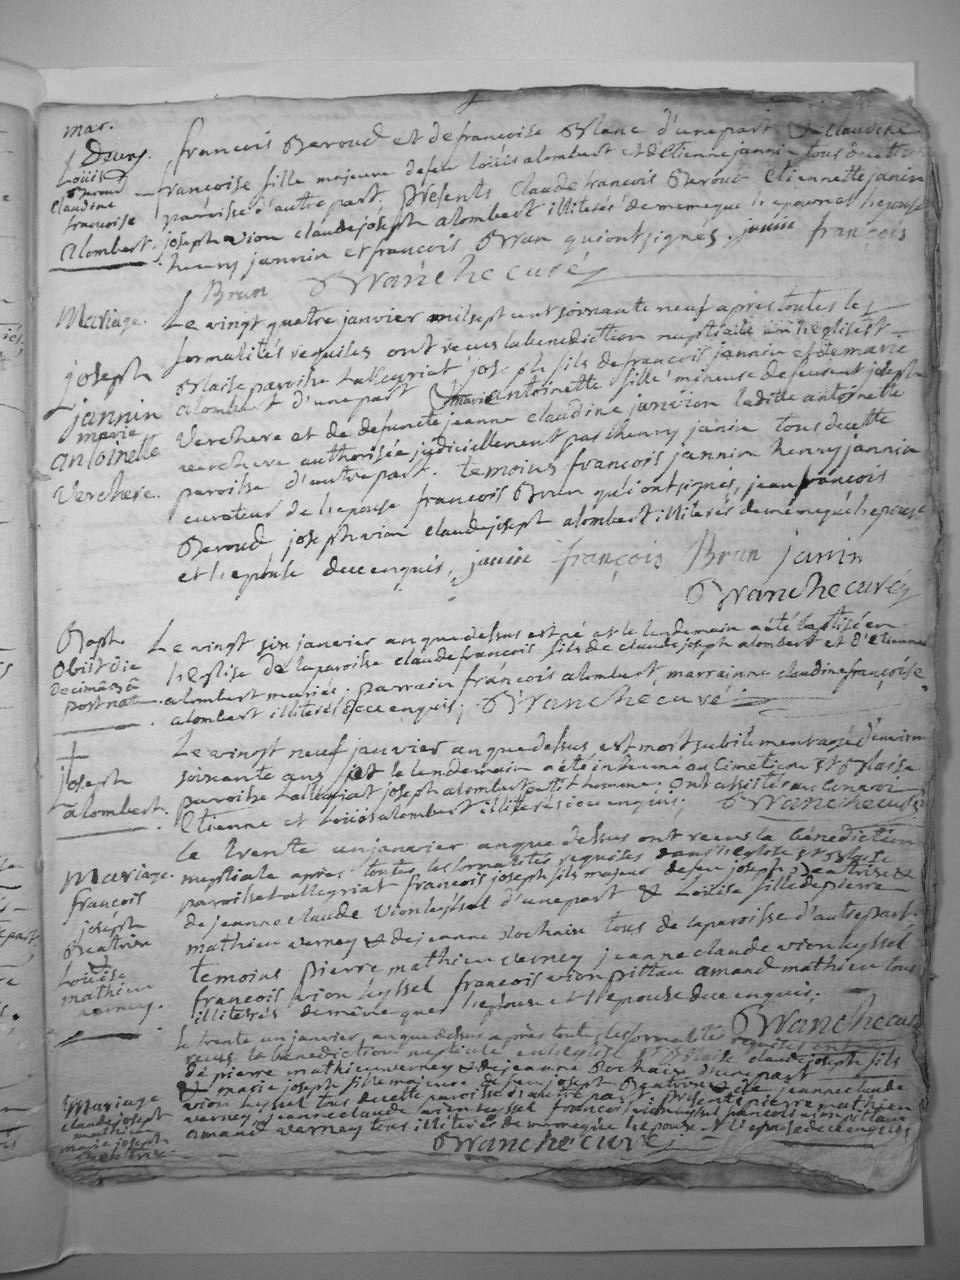 mar.
Louis
Beroud
Claudine
françoise
alombert.
françois Beroud et de françoise Blanc d'une part & claudine
françoise fille majeure de feu Loüis alombert et d'Etiennejannin tous de cette
paroisse d'autre part. présents claude françois Beroud Etiennette janin
joseph vion claude joseph alombert illiterés de meme que l'epoux et l'epouse
henry jannin et francois Brun qui ont signés. janin françois
Brun Branche curé
Mariage.
joseph
jannin
marie
antoinette
Verchere.
Le vingt quatre janvier mil sept cent soixante neuf apres toutes les
formalités requises ont recus la benediction nuptiale en l'eglise st
Blaise paroisse Lalleyriat joseph fils de françois jannin et de marie
alombert d'une part & marie antoinette fille mineure de feu joseph
Verchere et de defunte jeanne claudine janvion laditte antoinette
verchere authorisée judiciellement par henry janin tous de cette
paroisse d'autre part. temoins françois jannin henry jannin
curateur de l'epouse francois Brun qui ont signés, jean françois
Beroud joseph vion claude joseph alombert illiterés de même que l'epoux
et l'epouse de ce enquis, janin françois Brun janin
Branche curé
Bapt.
obiit die
decimâ 9â
post nat.
Le vingt six janvier an que dessus est né et le lendemain a été baptisé en
l'eglise de la paroisse claude francois fils de claude joseph alombert et d'etiennette
alombert mariés. parrain françois alombert marrainne claudine françoise
alombert illiterés de ce enquis; Branche curé
†
joseph
alombert.
Le vingt neuf janvier an que dessus est mort subitement agé d'environ
soixante ans et le lendemain a été inhumé au cimetiere st Blaise
paroisse Lalleyriat joseph alombert petit homme. ont assistés au convoi
Etienne et Loüis alombert illiterés de ce enquis; Branche curé
Mariage.
françois
joseph
Beatrix
Louise
mathieu
verney.
Le trente un janvier an que dessus ont recus la benediction
nuptiale apres toutes les formalités requises dans l'eglise st Blaise
paroisse Lalleyriat francois joseph fils majeur de feu joseph Beatrix &
de jeanne claude vion lyssel d'une part & Loüise fille de pierre
mathieu verney & de jeanne Rochaix tous de la paroisse d'autre part.
temoins pierre mathieu verney jeanne claude vion lyssel
francois vion lyssel francois vion pittau amand mathieu tous
illiterés de même que l'epoux et l'epouse de ce enquis.
Branche curé
Mariage
claude joseph
mathieu
marie joseph
Beatrix.
Le trente un janvier, an que dessus apres toutes les formalités requises ont
recus la benediction nuptiale en l'eglise st Blaise claude joseph fils
de pierre mathieu verney & de jeanne Rochaix d'une part
& marie joseph fille majeure de feu joseph Beatrix & de jeanne claude
vion lyssel tous de cette paroisse d'autre part. présents pierre mathieu
verney jeanne claude vion lyssel francois vion lyssel francois vion pittau
amand verney tous illiterés de meme que l'epoux et l'epouse de ce enquis
Branche curé